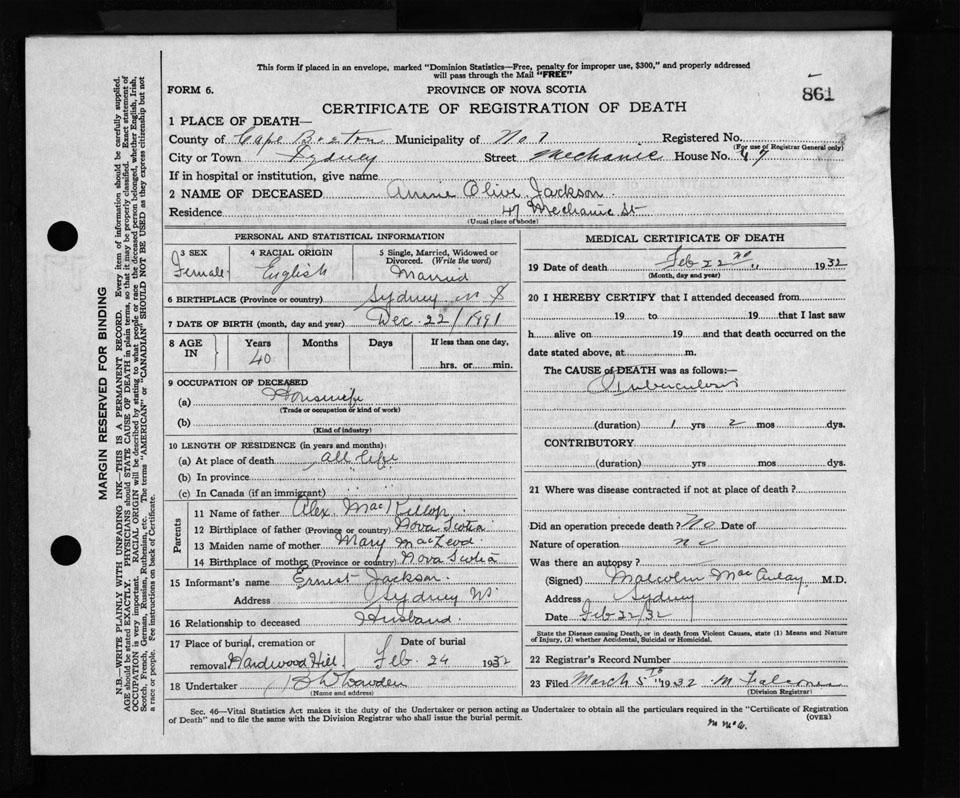 This form if placed in an envelope, marked "Dominion Statistics—Free, penalty for improper use, $300," and properly addressed
will pass through the Mail "FREE"
FORM 6.
PROVINCE OF NOVA SCOTIA
861
CERTIFICATE OF REGISTRATION OF DEATH
1 PLACE OF DEATH—
County of Cape Breton Municipality of No 1 Registered No.
(For use of Registrar General only)
City or Town Sydney Street Mechanic House No. 47
If in hospital or institution, give name
2 NAME OF DECEASED Annie Olive Jackson
Residence 47 Mechanic St
(Usual place of abode)
PERSONAL AND STATISTICAL INFORMATION
3 SEX
Female
4 RACIAL ORIGIN
English
5 Single, Married, Widowed or
Divorced. (Write the word)
Married
6 BIRTHPLACE (Province or country) Sydney N S
7 DATE OF BIRTH (month, day and year) Dec. 22/1891
8 AGE
IN
Years
40
Months
Days
If less than one day,
hrs. or min.
9 OCCUPATION OF DECEASED
(a) Housewife
(Trade or occupation or kind of work)
(b)
(Kind of industry)
10 LENGTH OF RESIDENCE (in years and months):
(a) At place of death All life
(b) In province
(c) In Canada (if an immigrant)
Parents
11 Name of father Alex. MacKillop
12 Birthplace of father (Province or country) Nova Scotia
13 Maiden name of mother Mary MacLeod
14 Birthplace of mother (Province or country) Nova Scotia
15 Informant's name Ernest Jackson
Address Sydney NS
16 Relationship to deceased Husband
17 Place of burial, cremation or
removal Hardwood Hill
Date of burial
Feb. 24 1932
18 Undertaker
(Name and address)
MEDICAL CERTIFICATE OF DEATH
19 Date of death Feb 22nd 1932
(Month, day and year)
20 I HEREBY CERTIFY that I attended deceased from
19 to 19 that I last saw
h alive on 19 and that death occurred on the
date stated above, at m.
The CAUSE of DEATH was as follows:—
Tuberculosis
(duration) 1 yrs 2 mos dys.
CONTRIBUTORY
(duration) yrs mos dys.
21 Where was disease contracted if not at place of death?
Did an operation precede death? No Date of
Nature of operation no
Was there an autopsy?
(Signed) Malcolm MacAulay M.D.
Address Sydney
Date Feb 22/32
State the Disease causing Death, or in death from Violent Causes, state (1) Means and Nature
of Injury, (2) whether Accidental, Suicidal or Homicidal.
22 Registrar's Record Number
23 Filed March 5th 1932 M Falconer
(Division Registrar)
Sec. 46—Vital Statistics Act makes it the duty of the Undertaker or person acting as Undertaker to obtain all the particulars required in the "Certificate of Registration
of Death" and to file the same with the Division Registrar who shall issue the burial permit.
(OVER)
MARGIN RESERVED FOR BINDING
N.B.—WRITE PLAINLY WITH UNFADING INK—THIS IS A PERMANENT RECORD. Every item of information should be carefully supplied.
AGE should be stated EXACTLY. PHYSICIANS should STATE CAUSE OF DEATH in plain terms, so that it may be properly classified. Exact statement of
OCCUPATION is very important. RACIAL ORIGIN will be described by stating to what people or race the deceased person belonged, whether English, Irish,
Scotch, French, German, Russian, Ruthenian, etc. The terms "AMERICAN" or "CANADIAN" SHOULD NOT BE USED as they express citizenship but not
a race or people. See instructions on back of Certificate.